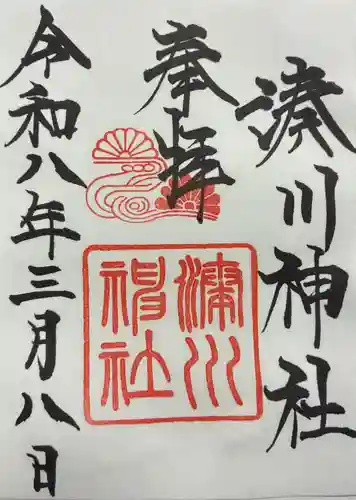 湊川神社
奉拝
湊川
神社
令和八年三月八日